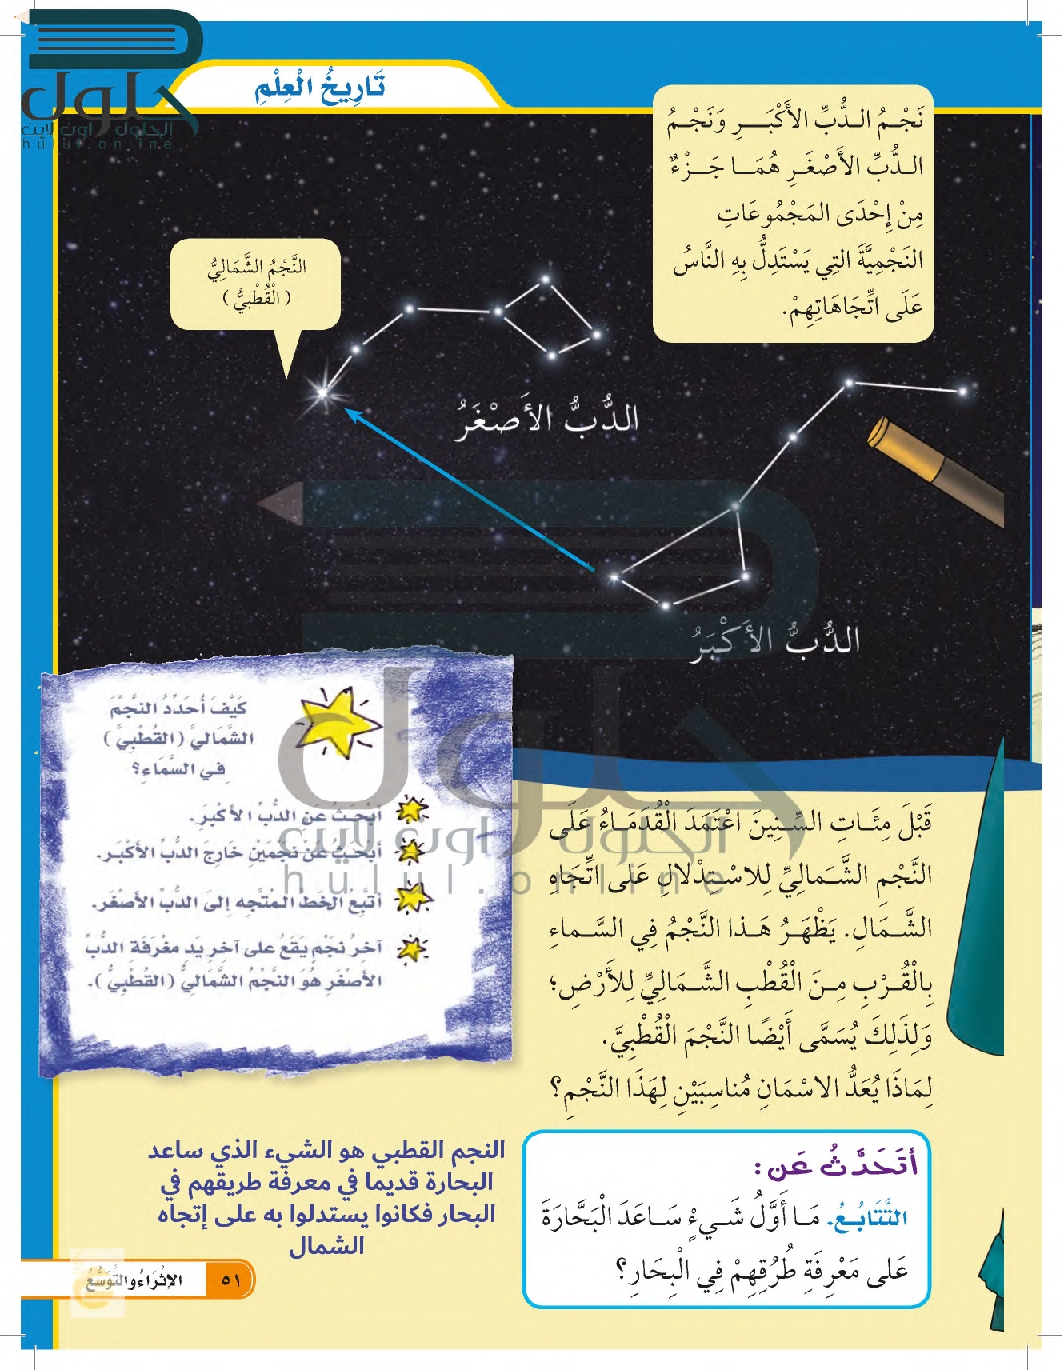 تَارِيخُ الْعِلْمِ
حلول
الحلول اون لاين
hulul.online
نَجْمُ الدُّبِّ الأَكْبَرِ وَنَجْمُ
الدُّبِّ الأَصْغَرِ هُمَا جَزْءٌ
مِنْ إِحْدَى المَجْمُوعَاتِ
النَجْمِيَّةَ التِي يَسْتَدِلُّ بِهِ النَّاسُ
عَلَى اتِّجَاهَاتِهِمْ.
النَّجْمُ الشَّمَالِيُّ
(الْقُطْبِيُّ)
الدُّبُّ الأَصْغَرُ
الدُّبُّ الأَكْبَرُ
كَيْفَ أُحَدِّدُ النَّجْمَ
الشَّمَالِيَّ (القُطْبِيَّ)
فِي السَّمَاءِ؟
أَبْحَثُ عَنِ الدُّبِّ الأَكْبَرِ.
أَبْحَثُ عَنْ نَجْمَيْنِ خَارِجَ الدُّبِّ الأَكْبَرِ.
أَتَّبِعُ الخَطَّ المُتَّجِهَ إِلَى الدُّبِّ الأَصْغَرِ.
آخِرُ نَجْمٍ يَقَعُ عَلَى آخِرِ يَدِ مغْرَفَةِ الدُّبِّ
الأَصْغَرِ هُوَ النَّجْمُ الشَّمَالِيُّ (القُطْبِيُّ).
حلول
الحلول اون لاين
hulul.online
قَبْلَ مِئَاتِ السِّنِينَ اعْتَمَدَ الْقُدَمَاءُ عَلَى
النَّجْمِ الشَّمَالِيِّ لِلاسْتِدْلالِ عَلَى اتِّجَاهِ
الشَّمَالِ. يَظْهَرُ هَذا النَّجْمُ فِي السَّماءِ
بِالْقُرْبِ مِنَ الْقُطْبِ الشَّمَالِيِّ لِلأَرْضِ؛
وَلِذَلِكَ يُسَمَّى أَيْضًا النَّجْمَ الْقُطْبِيَّ.
لِمَاذَا يُعَدُّ الاسْمَانِ مُناسِبَيْنِ لِهَذَا النَّجْمِ؟
أَتَحَدَّثُ عَنِ:
التَّتَابُعُ. مَا أَوَّلُ شَيءٍ سَاعَدَ الْبَحَّارَةَ
عَلَى مَعْرِفَةِ طُرُقِهِمْ فِي الْبِحَارِ؟
النجم القطبي هو الشيء الذي ساعد
البحارة قديما في معرفة طريقهم في
البحار فكانوا يستدلوا به على إتجاه
الشمال
٥١ الإِثْرَاءُ والتَّوَسُّعُ